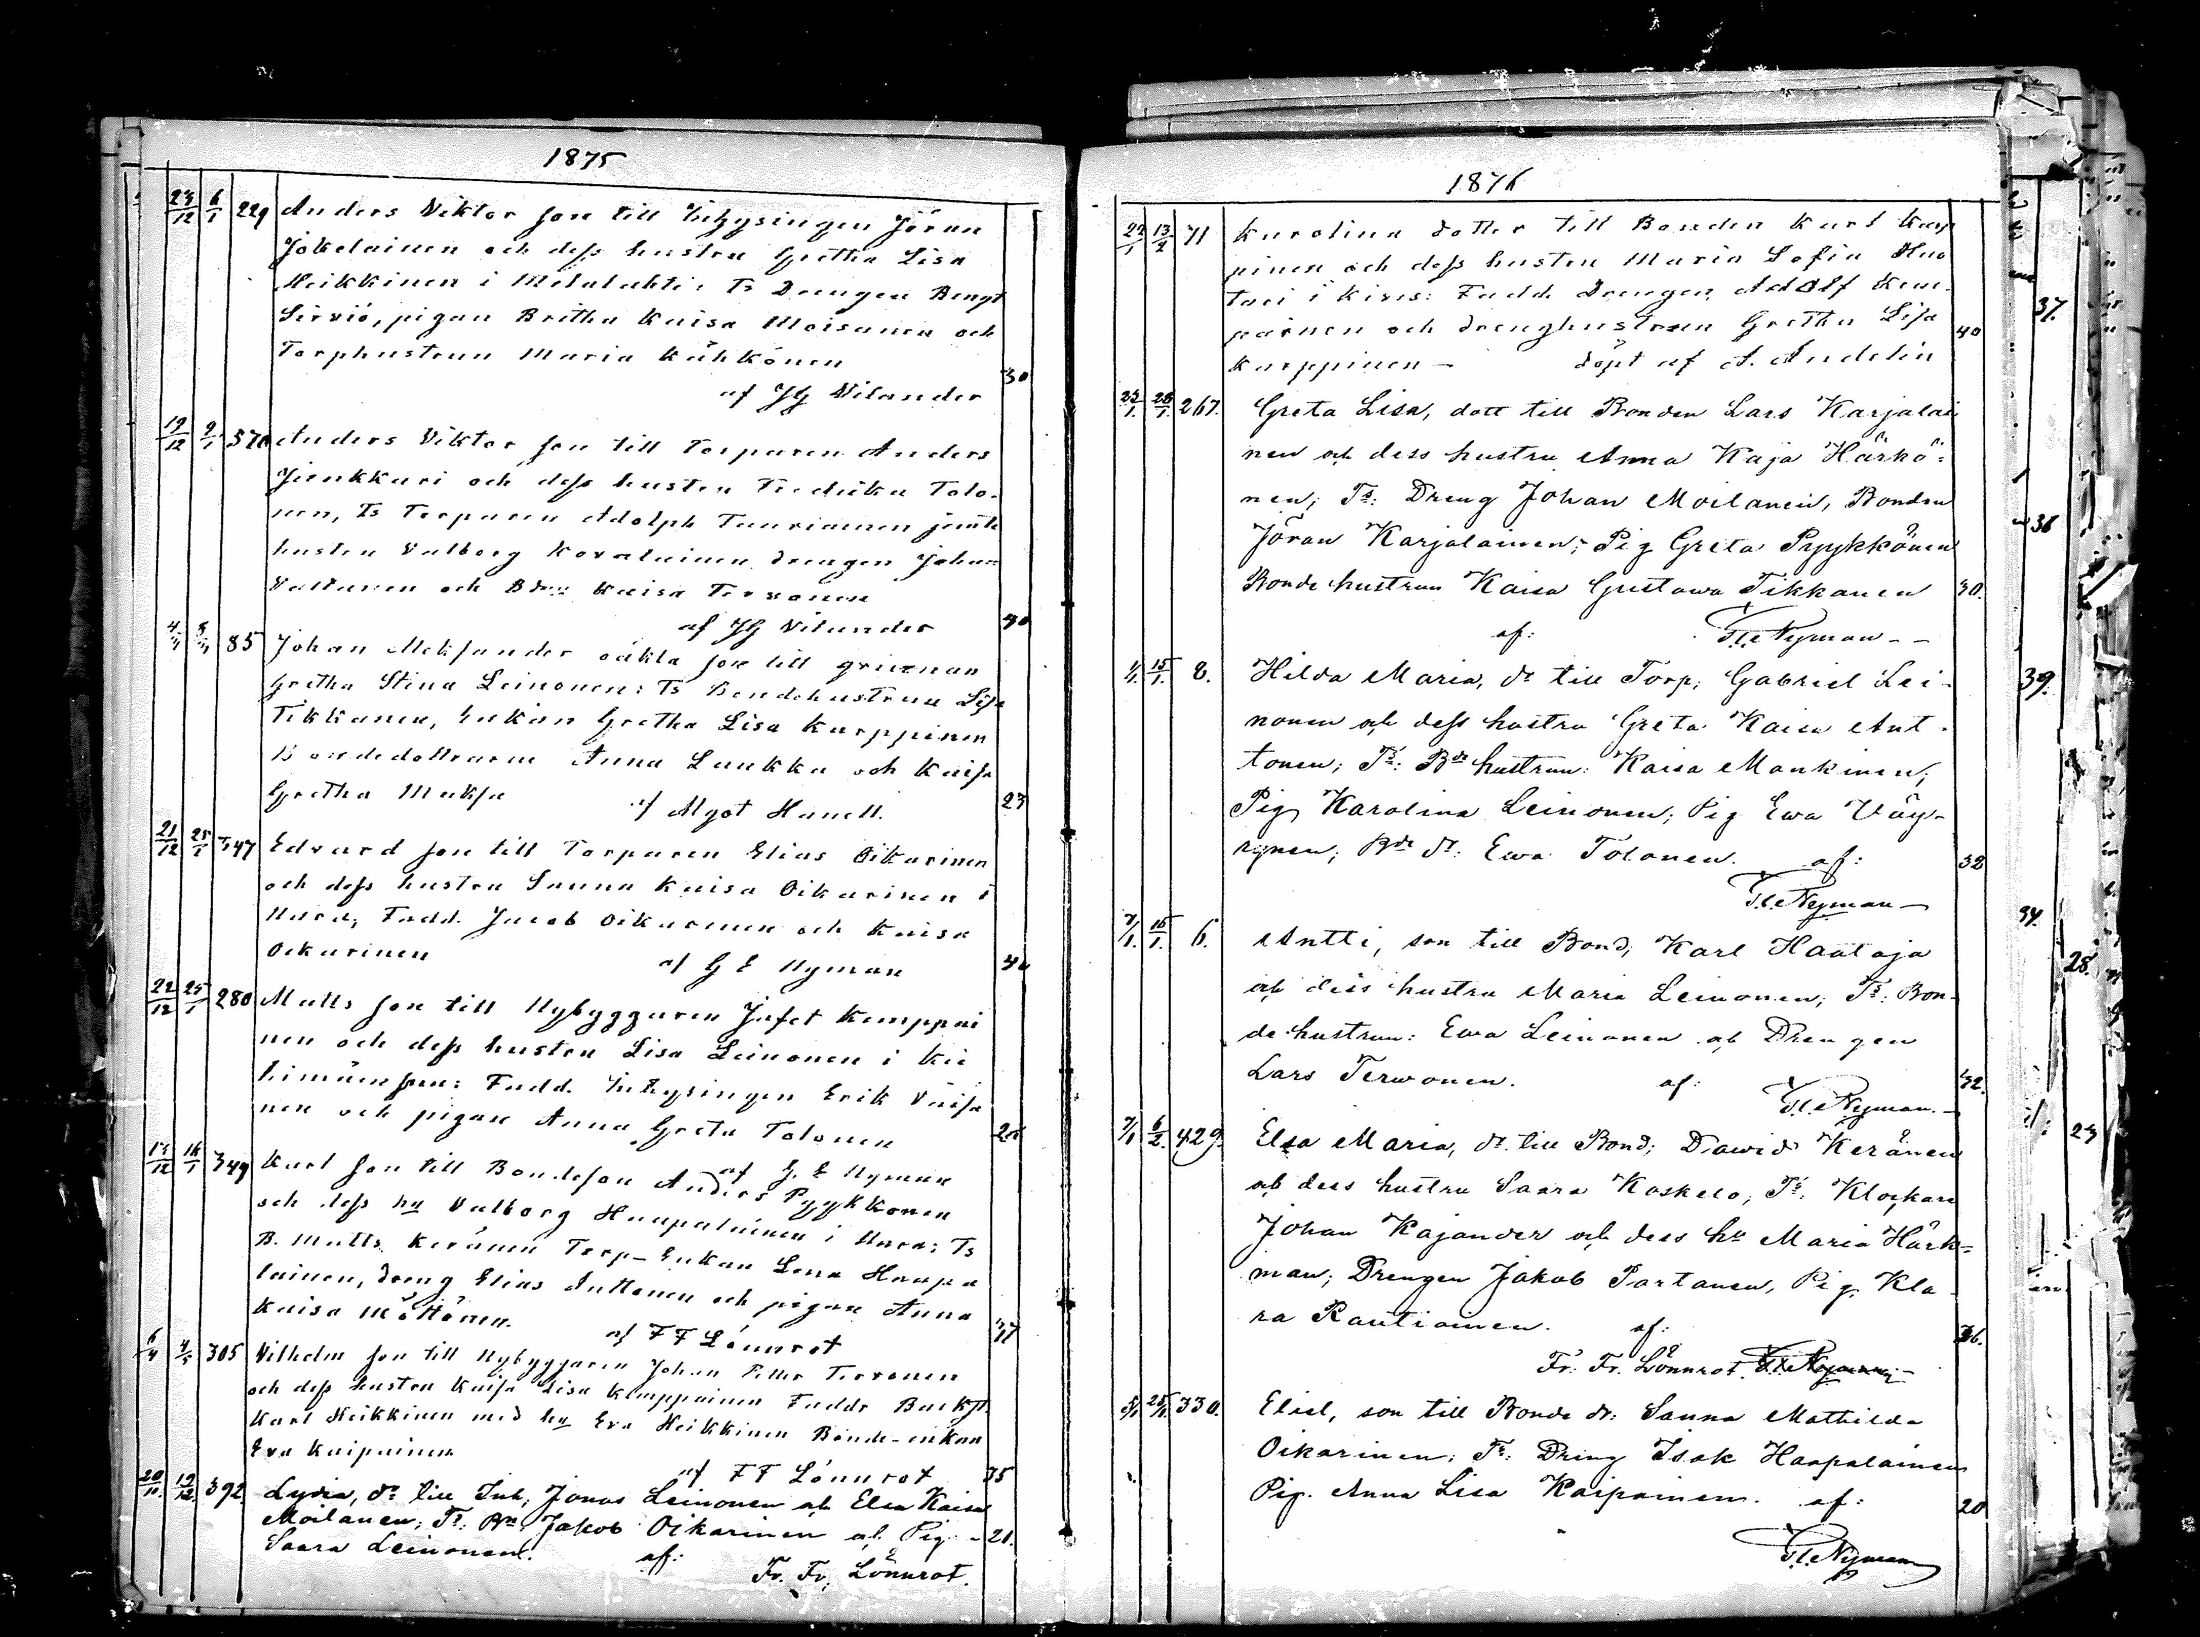 1875
23/12 6/1 229 Anders Viktor son till Inhysingen Jöran
Jokelainen och dess hustru Gretha Lisa
Heikkinen i Melalahti: Ts Drengen Bengt
Sirviö, pigan Britha Kaisa Moisanen och
Torphustrun Maria Kähkönen 30
af JG Vilander
19/12 9/1 Anders Viktor son till Torparen Anders
och dess hustru Fredrika Tolo-
nen, Ts Torparen Adolph Tauriainen jemte
hustru Valborg Kovalainen, drengen Johan
och Kaisa Tervonen
af JG Vilander 30
85 Johan Aleksander oäkta son till qvinnan
Gretha Stina Leinonen: Ts Bondehustrun Lisa
Tikkanen, Enkan Gretha Lisa Karppinen
Bondedottrarne Anna Laukka och Kaisa
Gretha af Algot Hanell. 23
21/12 25/1 Edvard son till Torparen Elias Oikarinen
och dess hustru Sanna Kaisa Oikarinen i
Fadd. Jacob Oikarinen och Kaisa
Oikarinen af G E Nyman
22/12 25/1 280 Matts son till Nybyggaren Jafet Kemppai
nen och dess hustru Lisa Leinonen i Kii
Fadd. Inhysingen Erik Väisä
nen och pigan Anna Greta Tolonen
af G. E Nyman
16/1 349 Karl son till Bondeson Anders Pyykkönen
och dess hu Valborg Haapalainen i Ts
B. Matts Keränen Torp- Enkan Lena Haapa
lainen, dreng Elias Anttonen och pigan Anna
Kaisa Möttönen. af F F Lönnrot
305 Vilhelm son till Nybyggaren Johan Petter Tervonen
och dess hustru Kaisa Lisa Kemppainen Faddr Backst.
Karl Heikkinen med hu Eva Heikkinen Bonde-enkan
Eva Kaipainen af F F Lönnrot 35
19/12. 392. Lydia, dr till Inh, Jonas Leinonen och Elsa Kaisa
Moilanen; Ts: Bn. Jakob Oikarinen och Pig - 21.
Saara Leinonen. af: Fr. Fr. Lönnrot.
1876
13/2 71 Karolina dotter till Bonden Karl Karp
pinen och dess hustru Maria Sofia Huo
tari i Fadd. Drengen Adolf Kem-
painen och drenghustrun Gretha Lisa 40
Karppinen - döpt af A. Andelin
267. Greta Lisa, dott till Bonden Lars Karjalai
nen och dess hustru Anna Kaja Härkö-
nen; Ts: Dreng Johan Moilanen, Bonden
Jöran Karjalainen; Pig Greta Pyykkönen
Bondehustrun Kaisa Gustawa Tikkanen 30.
af: Nyman - -
15/1. 8. Hilda Maria, dr till Torp; Gabriel Lei-
nonen och dess hustru Greta Kaisa Ant-
tonen; Ts: Bde hustrun: Kaisa Mankinen;
Pig Karolina Leinonen; Pig Ewa Väy-
rynen; Bde dr: Ewa Tolonen. af: 32
Nyman -
7/1. 16/1. 6. Antti, son till Bond; Karl Hautaja
och dess hustru Maria Leinonen; Ts: Bon-
dehustrun: Ewa Leinonen och Drengen
Lars Terwonen. af: 32.
Nyman. -
7/1 6/2. 429. Elsa Maria, dr. till Bond; Dawid Keränen
och dess hustru Saara Koskelo; Ts. Klockare
Johan Kajander och dess hu Maria Härk-
man; Drengen Jakob Partanen, Pig. Kla-
ra Rautiainen. af: 36.
Fr. Fr. Lönnrot.
330. Eliel, son till Bonde dr: Sanna Mathilda
Oikarinen; Ts: Dreng Isak Haapalainen
Pig. Anna Lisa Kaipainen. af: 20
Nyman
37.
38
39.
34.
28.
23